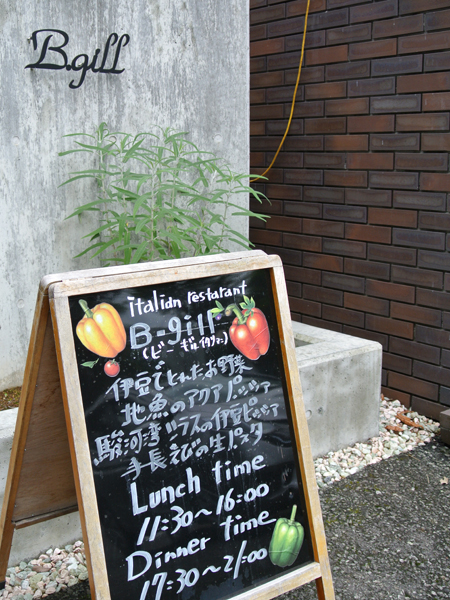 B.gill
italian restarant
B-gill
(ビーギル伊タリアン)
伊豆でとれたお野菜
地魚のアクアパッツァ
駿河湾シラスの伊豆ピッツァ
手長えびの生パスタ
Lunch time
11:30~16:00
Dinner time
17:30~21:00